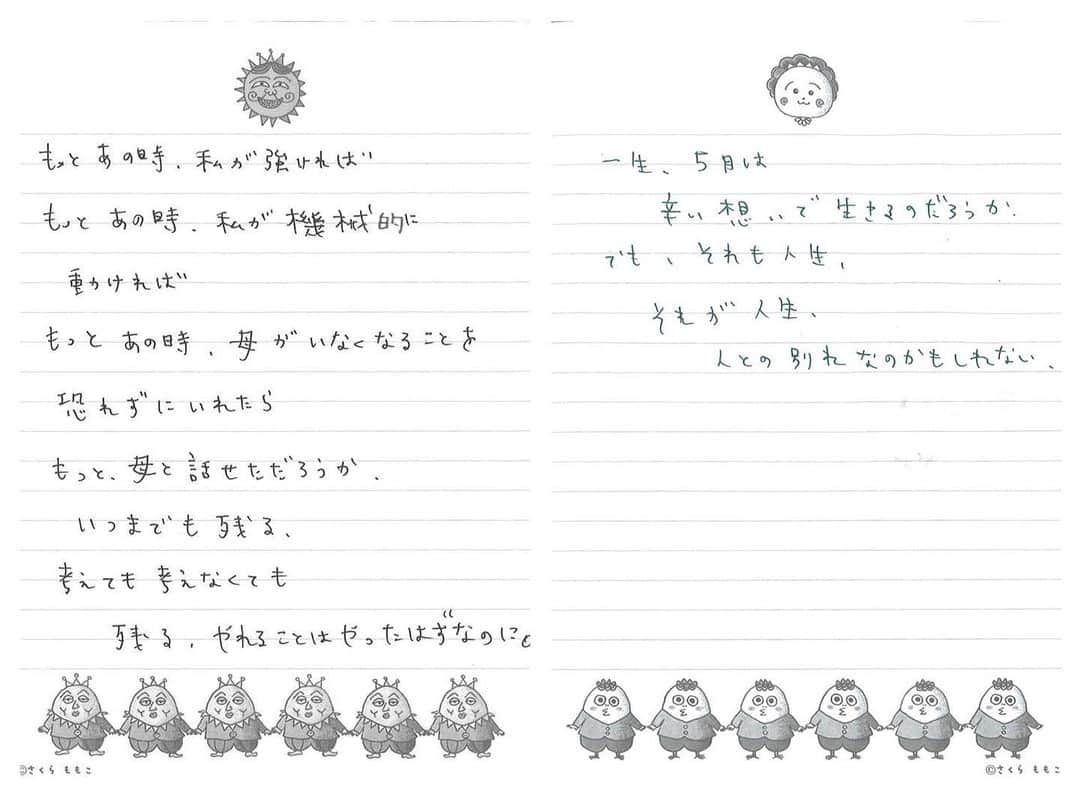 もっと あの時、私が強ければ
もっと あの時、私が機械的に
動かければ
もっと あの時、母がいなくなることを
恐れずにいれたら
もっと、母と話せただろうか、
いつまでも 残る、
考えても 考えなくても
残る、やれることはやったはずなのに。
©さくらももこ
一生、5月は
辛い想いで生きるのだろうか、
でも、それも人生、
それが人生、
人との別れなのかもしれない、
©さくらももこ